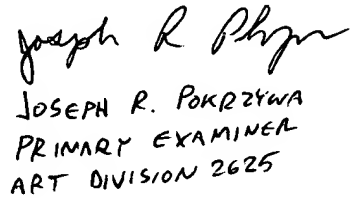 Joseph R Pkzyw
JOSEPH R. POKRZYWA
PRIMARY EXAMINER
ART DIVISION 2625